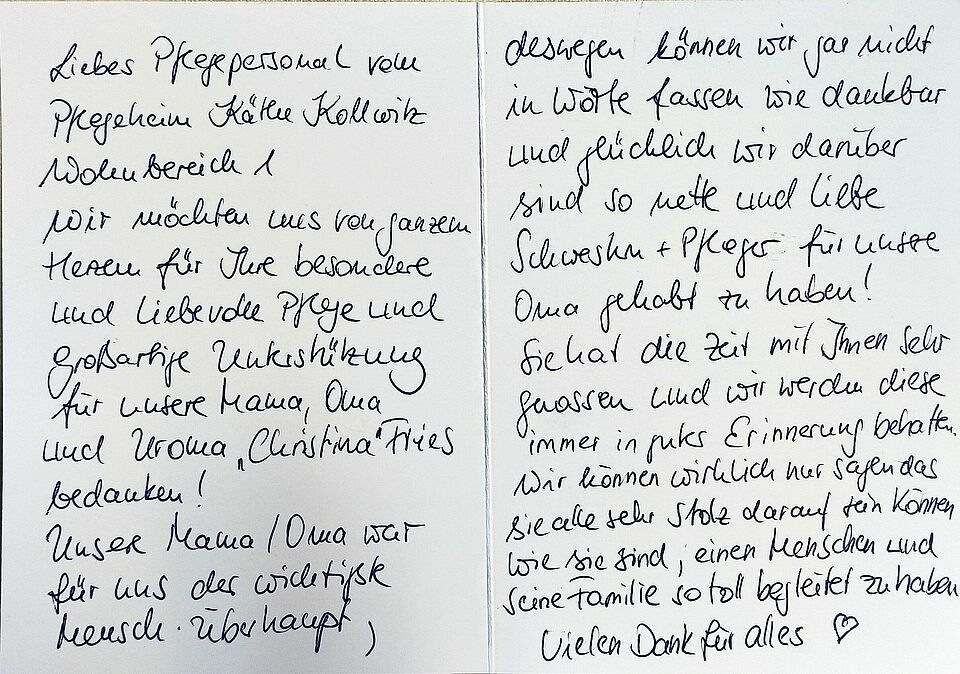 Liebes Pflegepersonal vom
Pflegeheim Käthe Kollwitz
Wohnbereich 1
Wir möchten uns von ganzem
Herzen für Ihre besondere
und liebevolle Pflege und
großartige Unterstützung
für unsere Mama, Oma
und Uroma „Christina" Fries
bedanken!
Unsere Mama / Oma war
für uns der wichtigste
Mensch überhaupt,
deswegen können wir gar nicht
in Worte fassen wie dankbar
und glücklich wir darüber
sind so nette und liebe
Schwestern + Pfleger für unsere
Oma gehabt zu haben!
Sie hat die Zeit mit Ihnen sehr
genossen und wir werden diese
immer in guter Erinnerung behalten.
Wir können wirklich nur sagen das
sie alle sehr Stolz darauf sein können
wie sie sind, einen Menschen und
seine Familie so toll begleitet zu haben
Vielen Dank für alles ♡